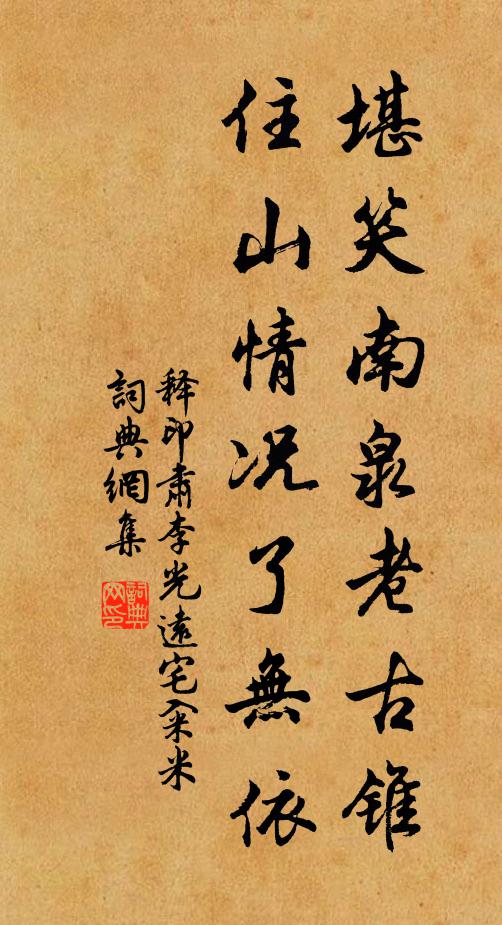 堪笑南泉老古锥
住山情况了無依
释印肅李光遠宅籴米
詞典網集
詞典
网印